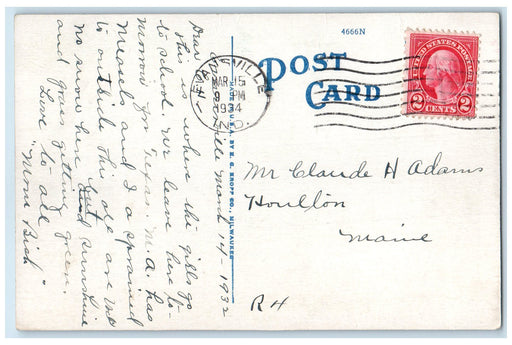 4666N
POST
CARD
UNITED STATES POSTAGE
2 CENTS 2
EVANSVILLE
MAR 15
9 PM
1934
IND.
MADE IN U.S.A. BY E. C. KROPP CO., MILWAUKEE
Evansville March 14-1932
Dear
This is where the girls go
to school. We leave here to-
morrow for Texas. M.A. has
Measels and I a sprained
outside this all are well
no snow here but sunshine
and grass getting green.
Love to all
"Mome Bish"
Mr Claude H Adams
Houlton
Maine
R4